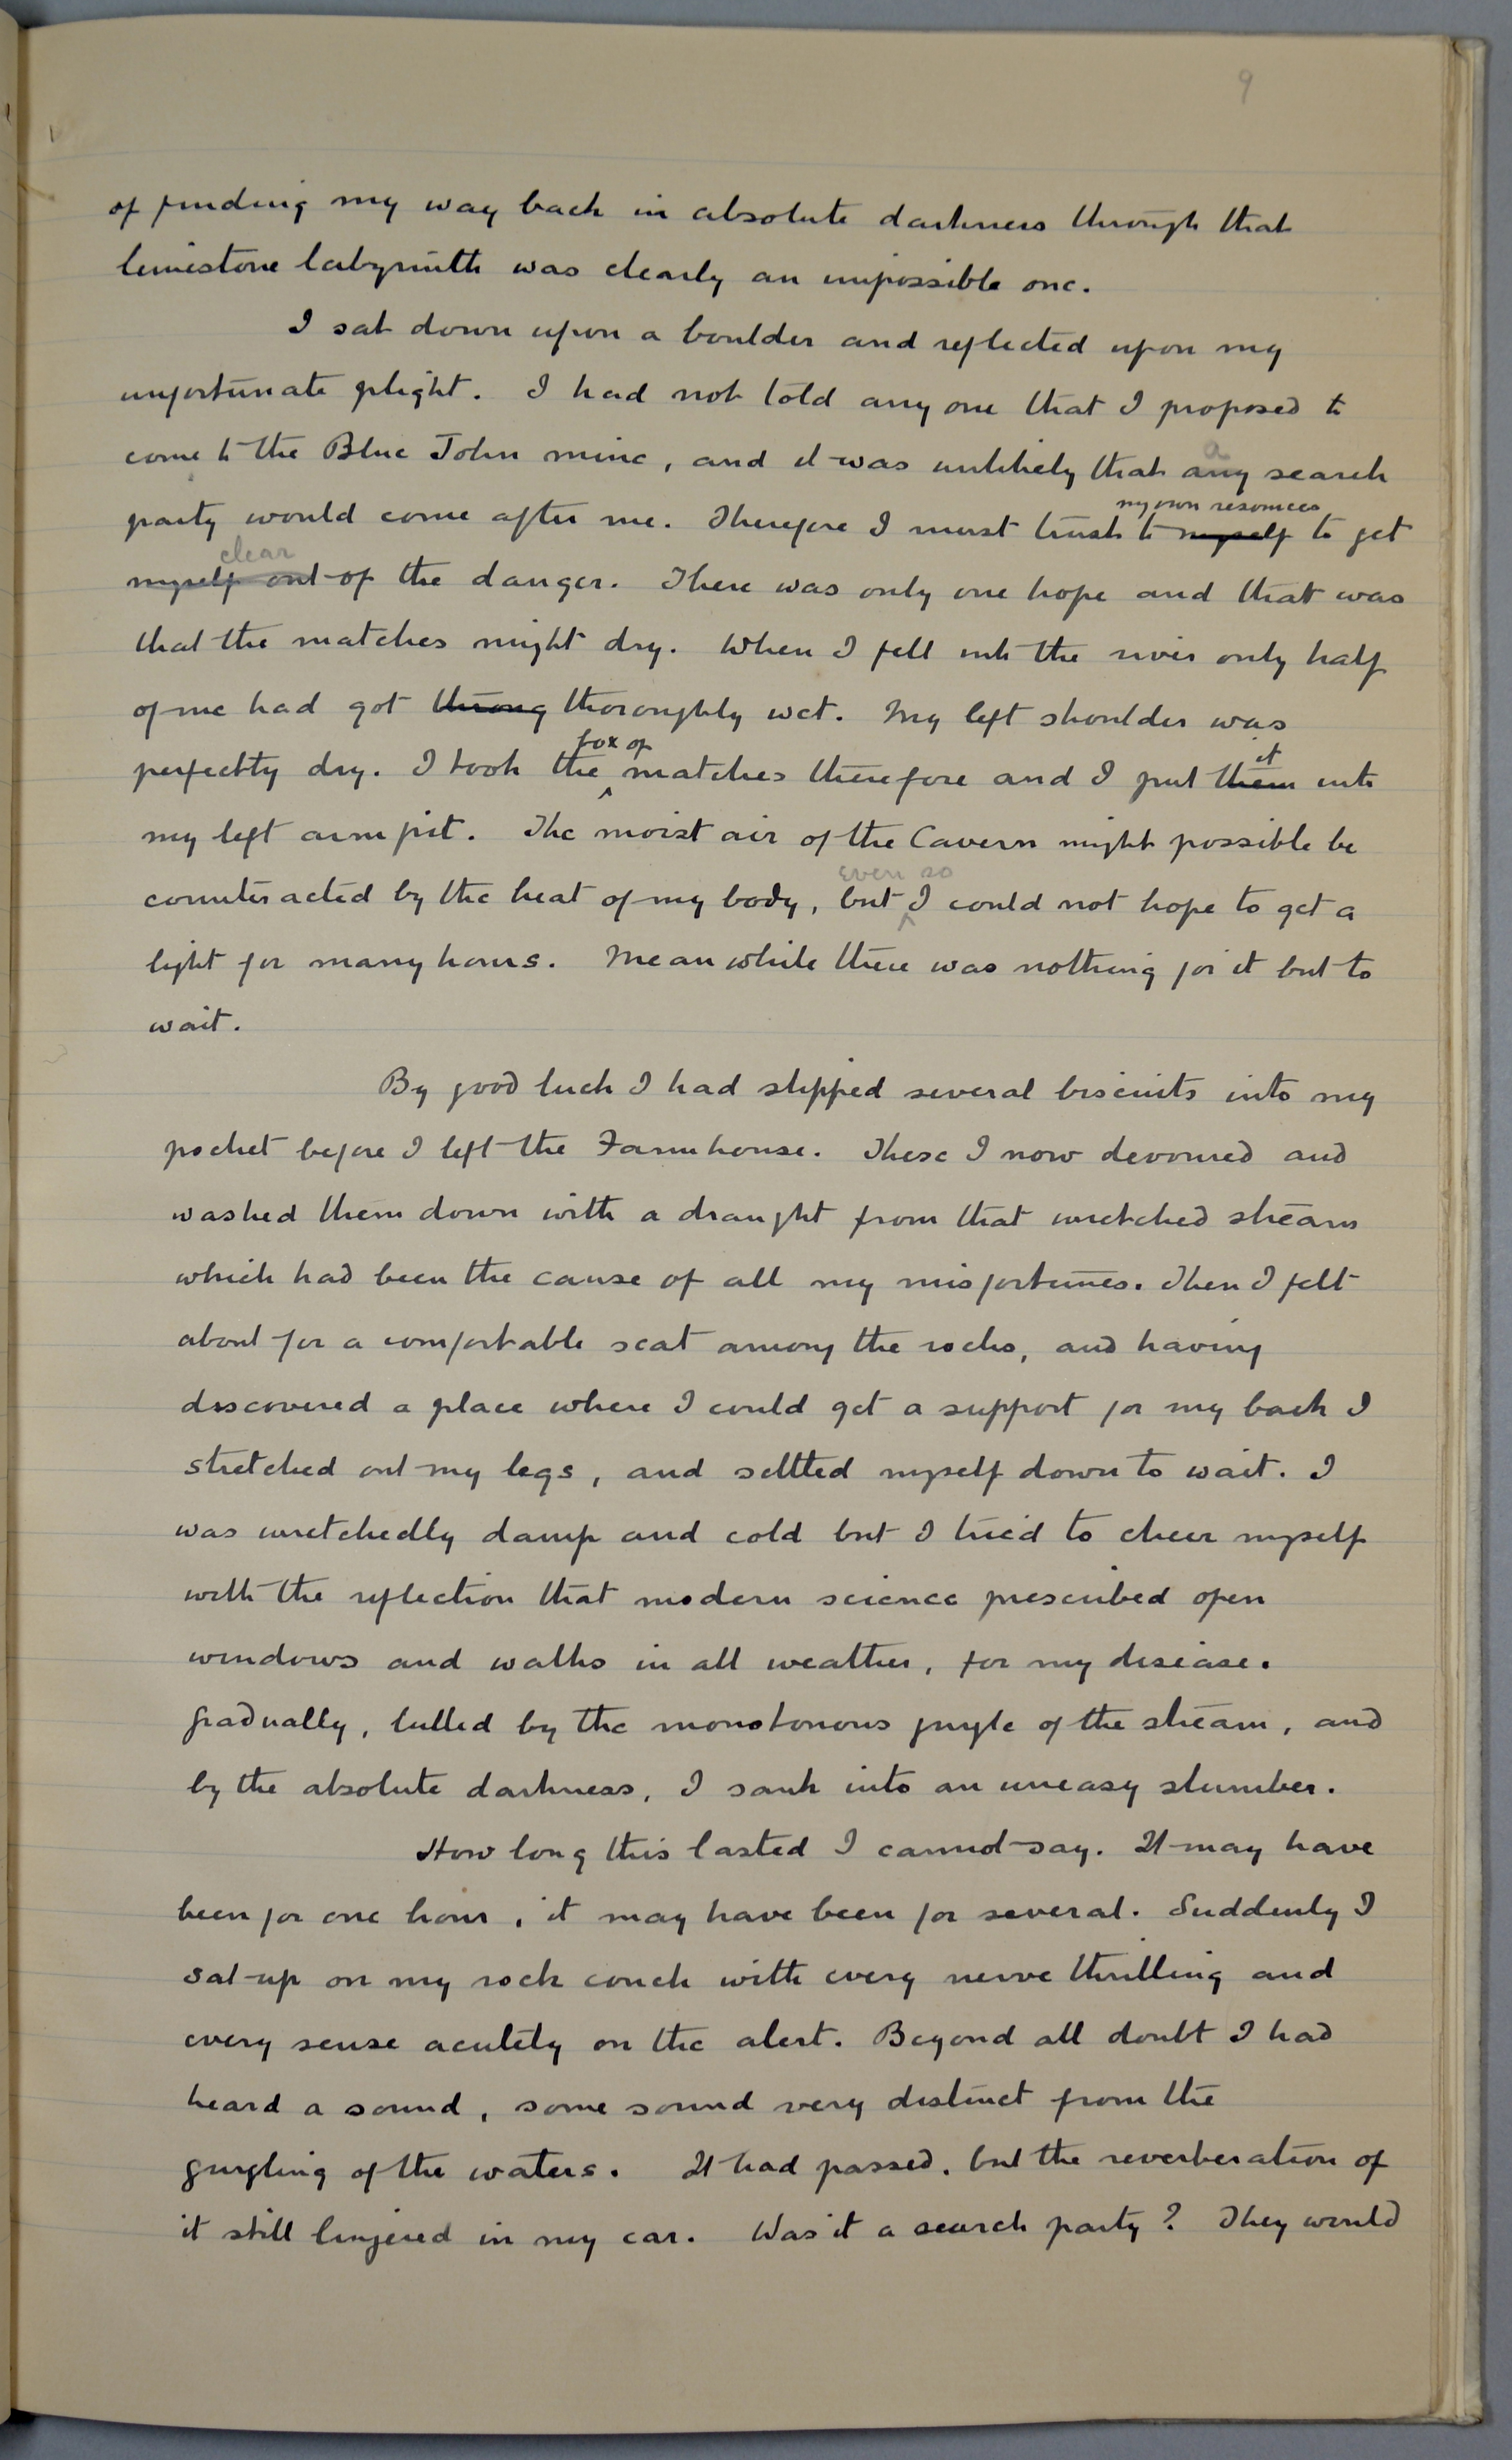 9
of finding my way back in absolute darkness through that
limestone labyrinth was clearly an impossible one.
I sat down upon a boulder and reflected upon my
unfortunate plight. I had not told any one that I proposed to
come to the Blue John mine, and it was unlikely that any search
a
party would come after me. Therefore I must trust to myself to get
my own resources
myself out of the danger. There was only one hope and that was
clear
that the matches might dry. When I fell into the river only half
of me had got throug thoroughly wet. My left shoulder was
perfectly dry. I took the matches therefore and I put them into
box of
it
my left arm pit. The moist air of the Cavern might possible be
counteracted by the heat of my body, but I could not hope to get a
even so
light for many hours. Meanwhile there was nothing for it but to
wait.
By good luck I had slipped several biscuits into my
pocket before I left the Farmhouse. These I now devoured and
washed them down with a draught from that wretched stream
which had been the cause of all my misfortunes. Then I felt
about for a comfortable seat among the rocks, and having
discovered a place where I could get a support for my back I
stretched out my legs, and settled myself down to wait. I
was wretchedly damp and cold but I tried to cheer myself
with the reflection that modern science prescribed open
windows and walks in all weather, for my disease.
Gradually, lulled by the monotonous gurgle of the stream, and
by the absolute darkness, I sank into an uneasy slumber.
How long this lasted I cannot say. It may have
been for one hour, it may have been for several. Suddenly I
sat up on my rock couch with every nerve thrilling and
every sense acutely on the alert. Beyond all doubt I had
heard a sound, some sound very distinct from the
gurgling of the waters. It had passed, but the reverberation of
it still lingered in my ear. Was it a search party? They would